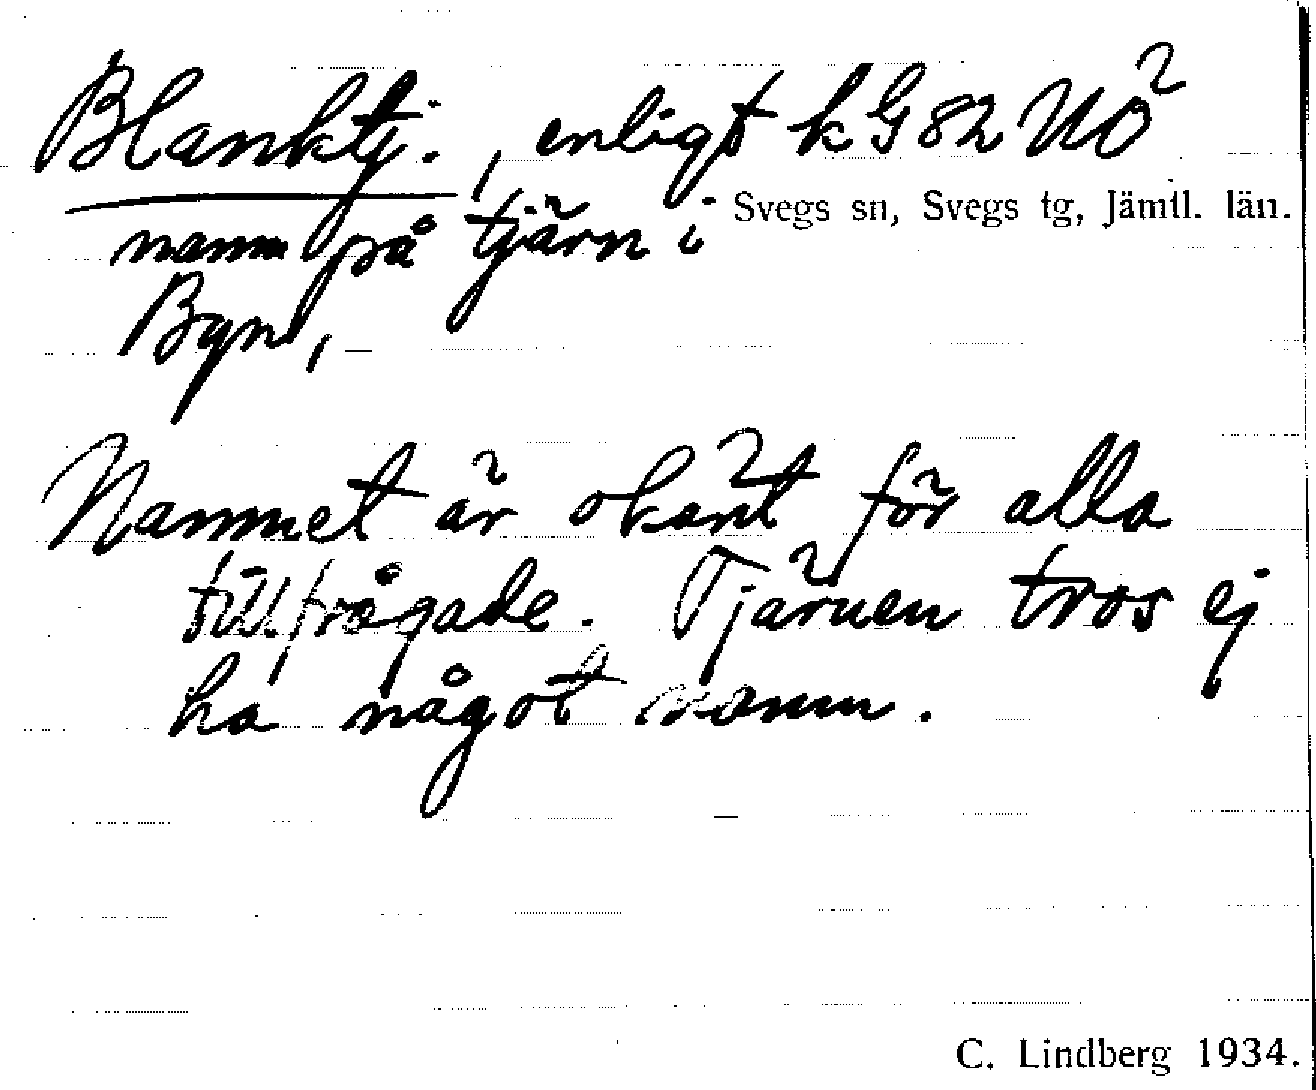 Blanktj., enligt kG82 NO²
Svegs sn, Svegs tg, Jämtl. län.
namn på tjärn i
Byn,
Namnet är okänt för alla
tillfrågade. Tjärnen tros ej
ha något namn.
C. Lindberg 1934.